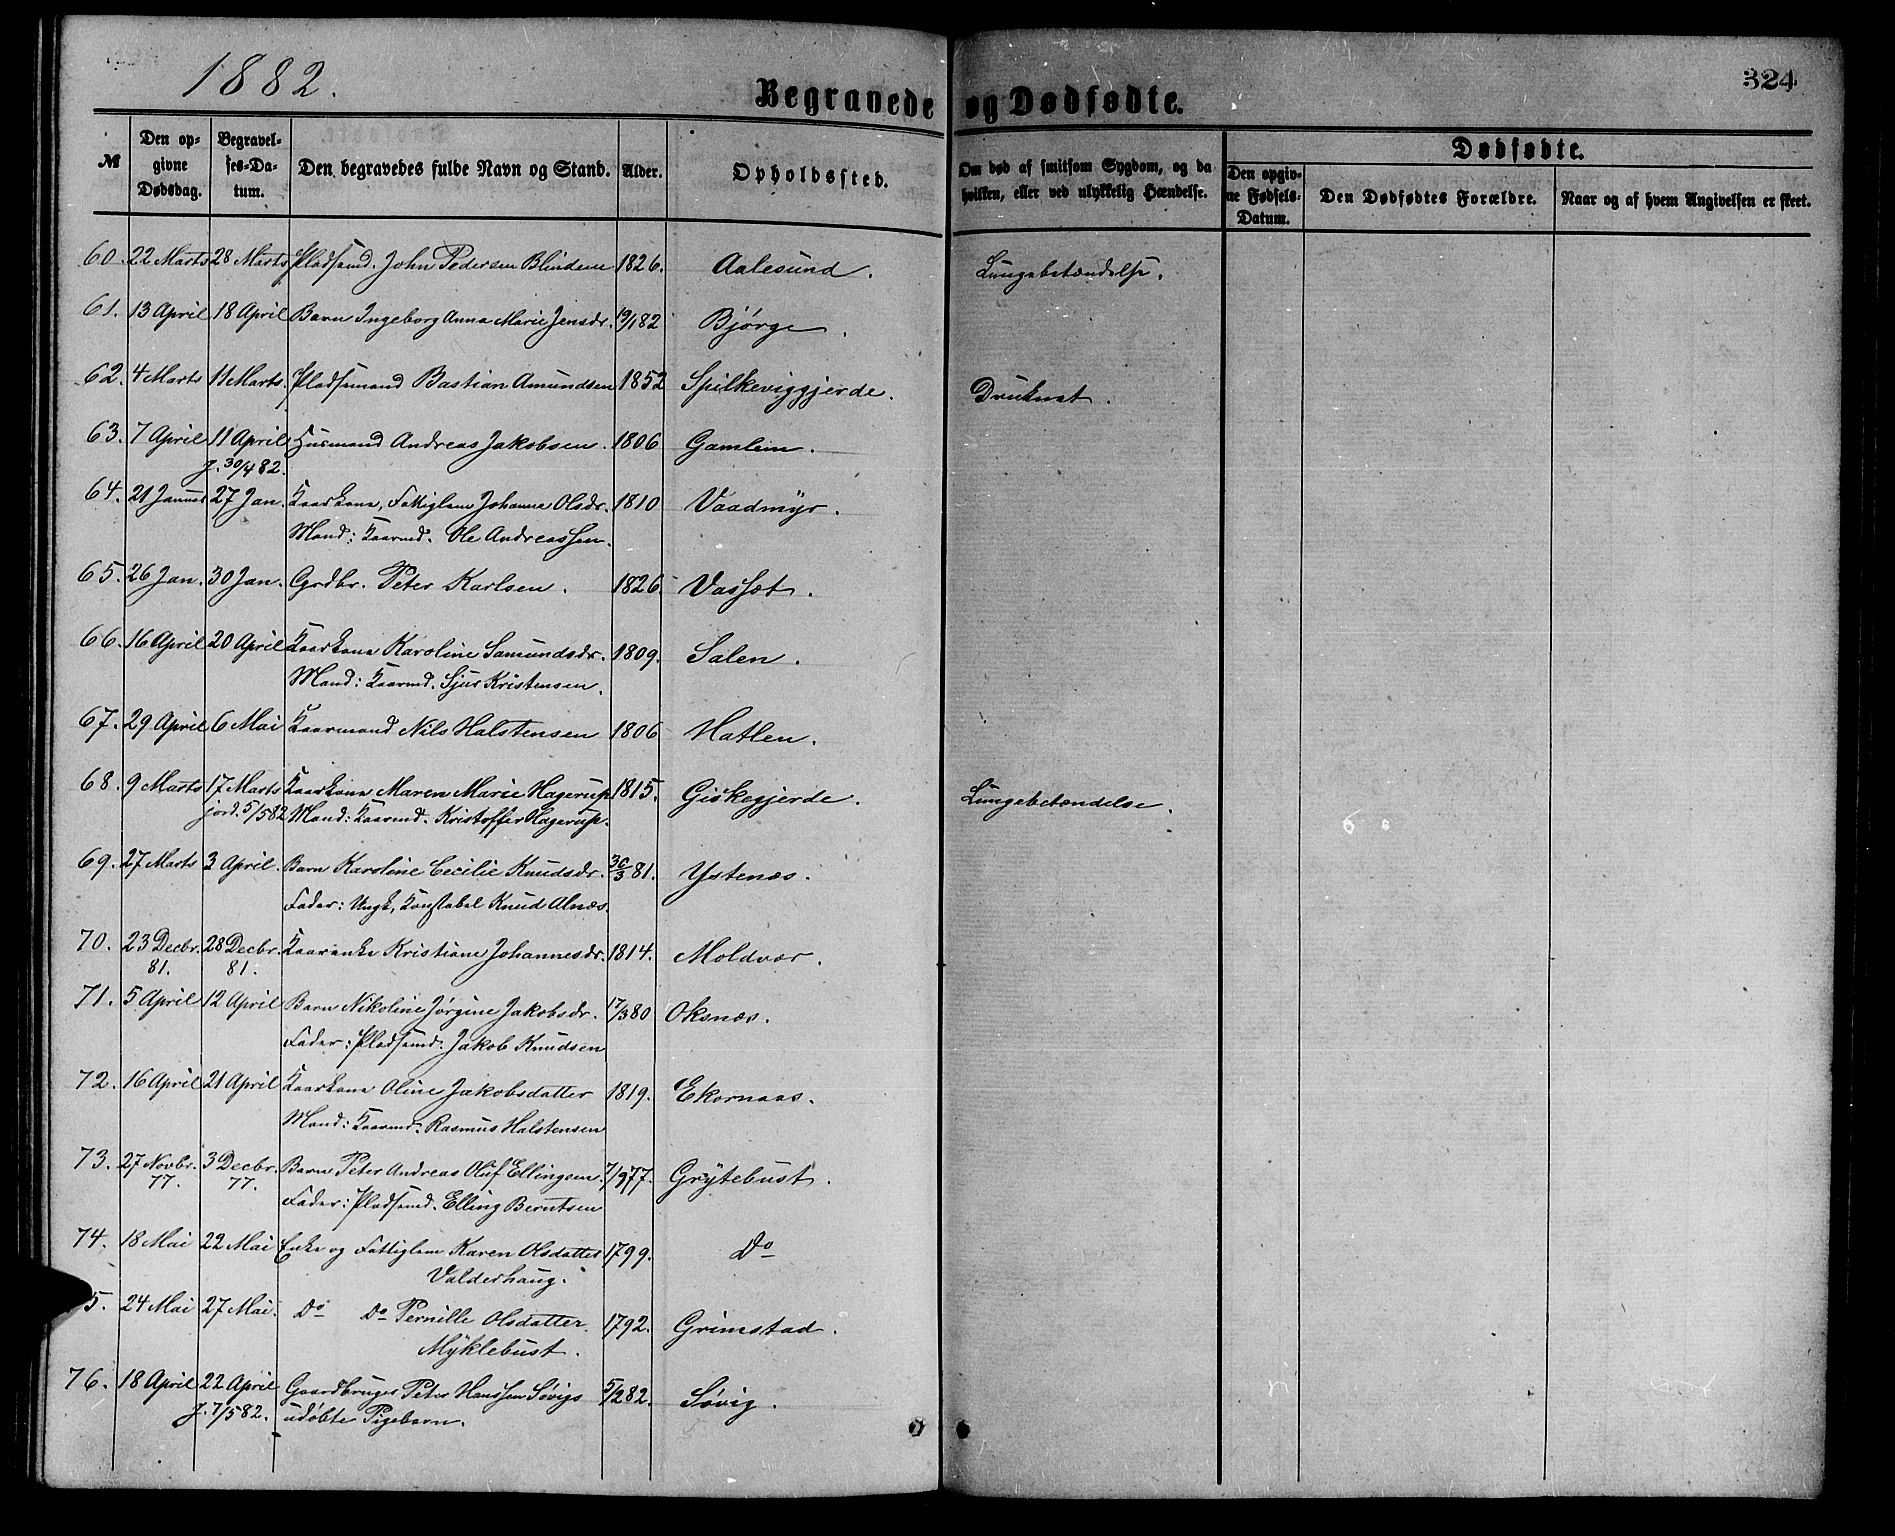 1882.
324
Begravede og Dødfødte.
№
Den opgivne Dødsdag.
Begravelses-Datum.
Den begravedes fulde Navn og Stand.
Alder.
Opholdssted.
Om død af smitsom Sygdom, og da hvilken, eller ved ulykkelig Hændelse.
Dødfødte.
Den opgivne Fødsels-Datum.
Den Dødfødtes Forældre.
Naar og af hvem Angivelsen er skeet.
60. 22 Marts 28 Marts Pladsemd. John Pedersen Blindem 1826. Aalesund. Lungebetændelse.
61. 13 April 18 April Barn Ingeborg Anna Marie Jensdr. 19/1 82 Bjørge.
62. 4 Marts 11 Marts. Pladsemand Bastian Amundsen 1852 Spilkeviggjerde. Druknet.
63. 7 April 11 April Husmand Andreas Jakobsen. 1806 Gamlem.
j. 30/4 82.
64. 21 Januar 27 Jan. Kaarkone, Fattiglem Johanne Olsdr. 1810 Vaadmyr.
Mand: Kaarmd. Ole Andreassen.
65. 26 Jan. 30 Jan. Grdbr. Peter Karlsen. 1826. Vasset.
66. 16 April 20 April Kaarkone Karoline Samundsdr. 1809. Salen.
Mand: Kaarmd. Sjur Kristensen.
67. 29 April 6 Mai Kaarmand Nils Halstensen 1806 Hatlen.
68. 9 Marts 17 Marts Kaarkone Maren Marie Hagerup 1815. Giskegjerde. Lungebetændelse.
jord. 5/5 82 Mand: Kaarmd. Kristoffer Hagerup.
69. 27 Marts 3 April. Barn Karoline Cecilie Knudsdr. 30/3 81. Ystenæs.
Fader: Ungk, Konstabel Knud Alnæs.
70. 23 Decbr. 28 Decbr. Kaarenke Kristiane Johannesdr. 1814. Moldvær.
81. 81.
71. 5 April 12 April Barn Nikoline Jørgine Jakobsdr. 17/3 80 Oksnæs.
Fader: Pladsemd. Jakob Knudsen
72. 16 April 21 April Kaarkone Oline Jakobsdatter 1819. Ekornaas.
Mand: Kaarmd. Rasmus Halstensen
73. 27 Novbr. 3 Decbr. Barn Peter Andreas Oluf Ellingsen. 7/9 77. Grytebust.
77. 77.
Fader: Pladsemd. Elling Berntsen
74. 18 Mai 22 Mai Enke og Fattiglem Karen Olsdatter 1799. Do
Valderhaug.
5. 24 Mai 27 Mai. Do Do Pernille Olsdatter 1792. Grimstad.
Myklebust.
76. 18 April 22 April Gaardbruger Peter Hanssen Søvigs 5/2 82. Søvig.
j. 7/5 82. udøbte Pigebarn.